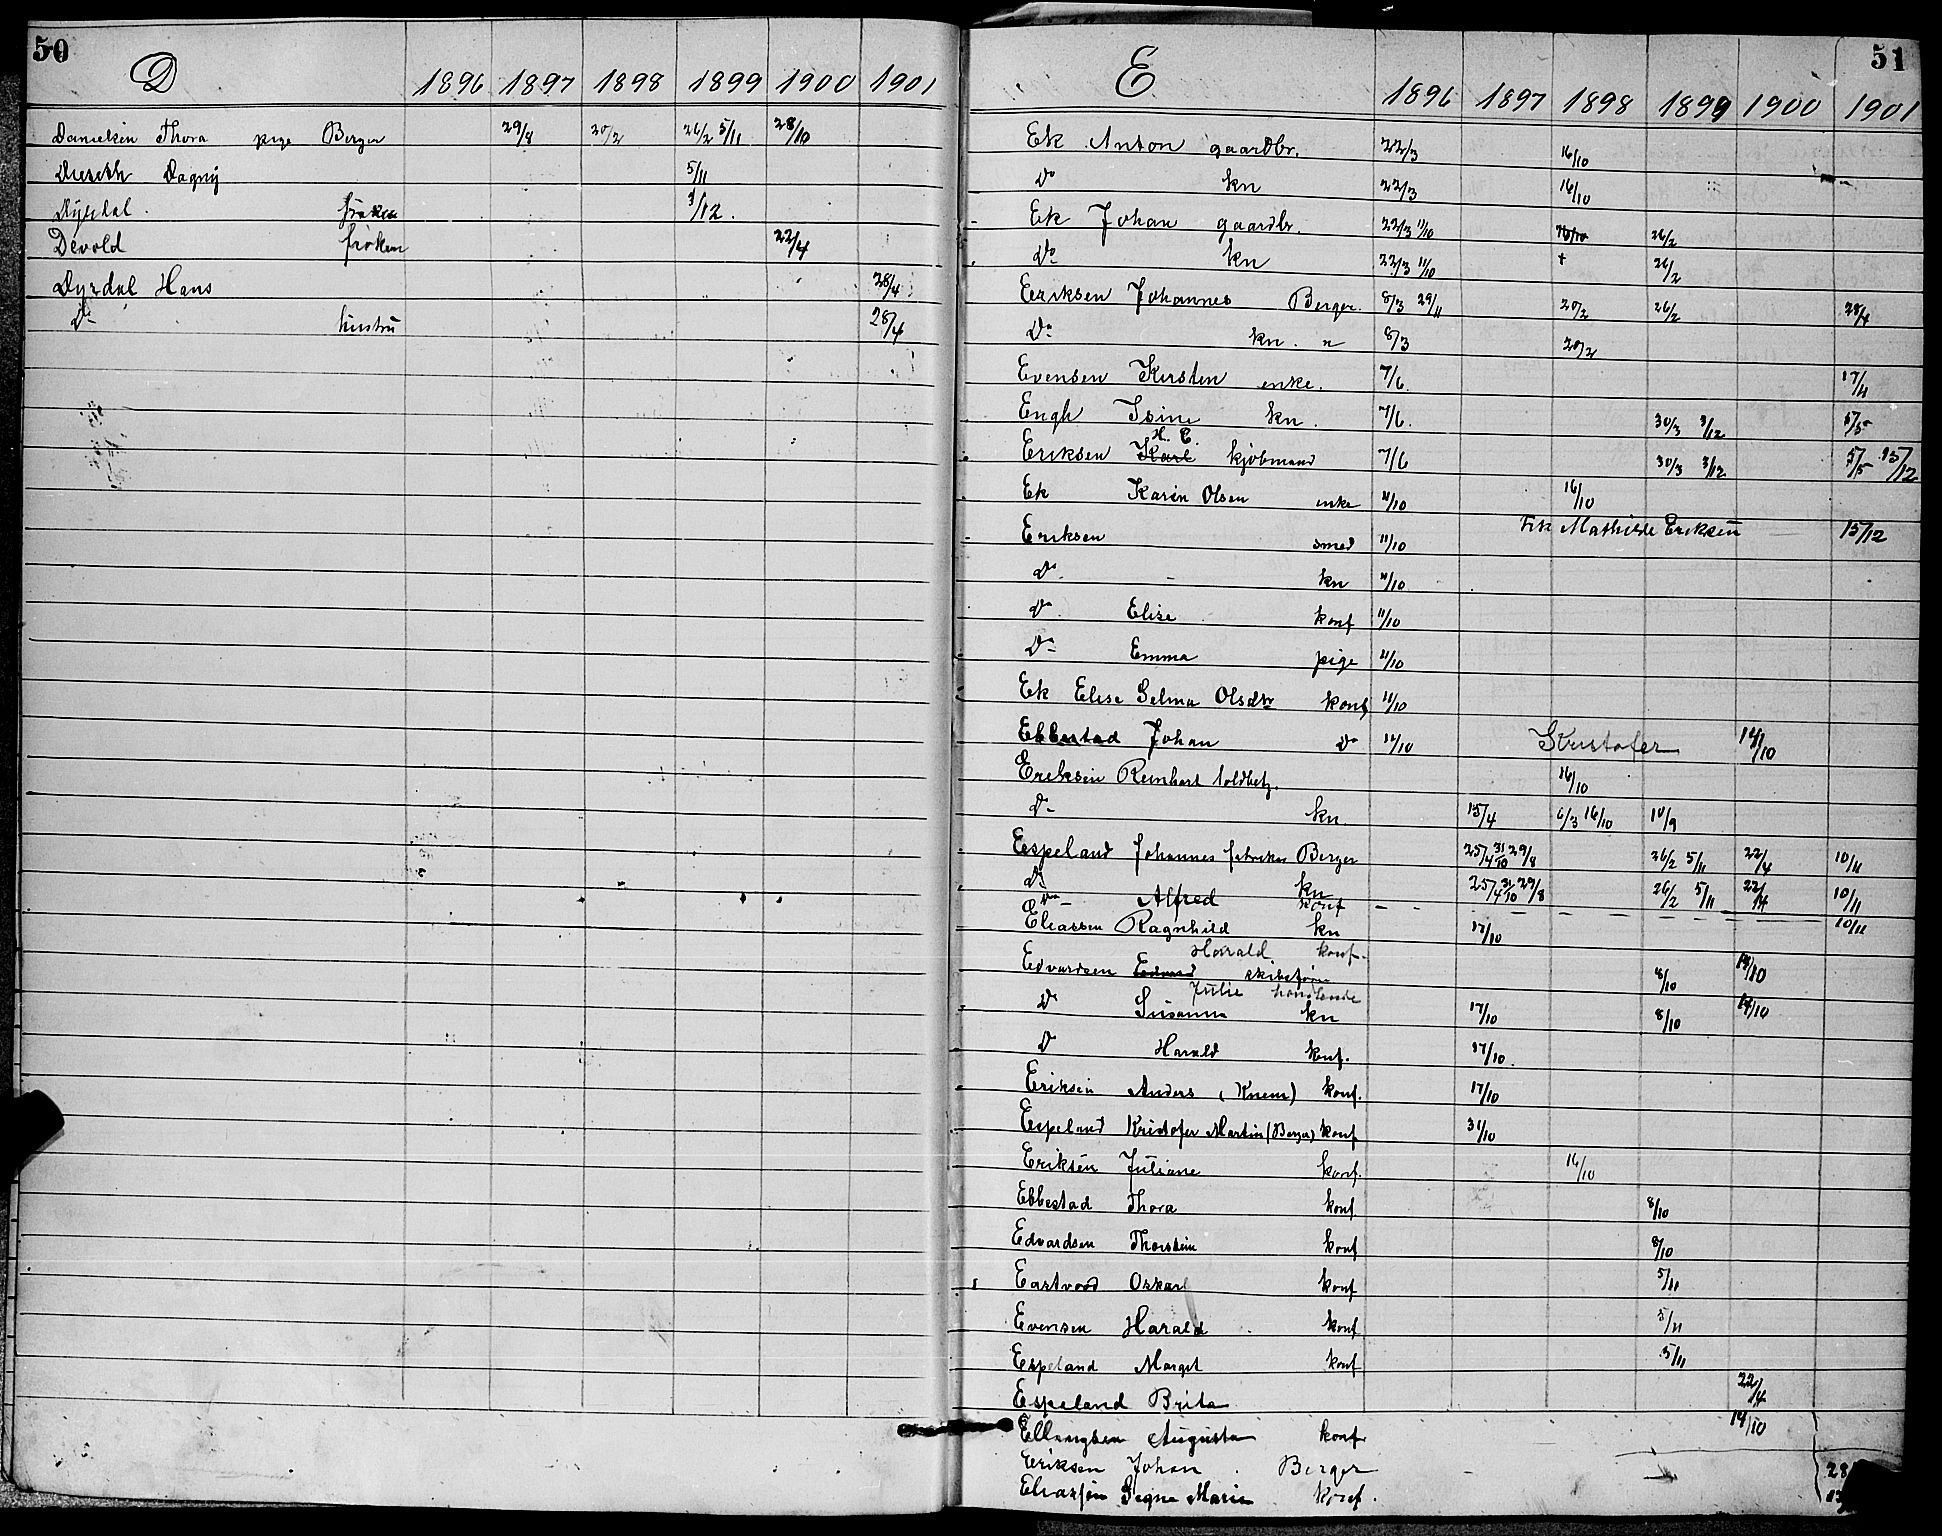 50
D 1896 1897 1898 1899 1900 1901
Danielsen Thora pige Berger 29/8 20/2 26/2 5/11 28/10
Dieseth Dagny 5/11
Dyrdal frøken 3/12.
Devold frøken 22/4
Dyrdal Hans 28/4
Do hustru 28/4
51
E 1896 1897 1898 1899 1900 1901
Ek Anton gaardbr. 22/3 16/10
Do kn 22/3 16/10
Ek Johan gaardbr. 22/3 11/10 16/10 26/2
Do kn 22/3 11/10 + 26/2
Eriksen Johannes Berger. 8/3 29/11 20/2 26/2 28/4
Do kn. " 8/3 20/2
Evensen Kirsten enke. 7/6. 17/11
Engh Isine kn. 7/6. 30/3 3/12 5/5
H. C.
Eriksen Karl kjøbmand 7/6 30/3 3/12 5/5 15/12
Ek Karin Olsen enke 11/10 16/10
Eriksen smed 11/10 Frk Mathilde Eriksen 15/12
Do - kn 11/10
Do Elise konf 11/10
Do Emma pige 11/10
Ek Elise Selma Olsdtr konf 11/10
Ebbestad Johan Do 11/10 Kristofer 14/10
Eriksen Reinhart toldbetj. 16/10
Do kn. 15/4 6/3 16/10 10/9
Espeland Johannes fabrikar Berger 25/4 31/10 29/8 26/2 5/11 22/4 10/11
Do kn 25/4 31/10 29/8 26/2 5/11 22/4 10/11
Do Alfred konf - - - - - - - 10/11
Eliassen Ragnhild kn 17/10
Harald konf.
Edvardsen Edvard skibsfører 8/10 14/10
Julie handlende
Do Susanna kn 17/10 8/10 14/10
Do Harald konf. 17/10.
Eriksen Anders (Knem) konf. 17/10
Espeland Kristofer Martin (Berger) konf 31/10
Eriksen Juliane konf. 16/10
Ebbestad Thora konf 8/10
Edvardsen Thorstein konf 8/10
Eastvood Oskar konf 5/11
Evensen Harald konf 5/11
Espeland Margit konf 5/11
Espeland Brita 22/4
Ellingsen Augusta konf 14/10
Eriksen Johan Berger 28
Eliassen Signe Marie konf. 13